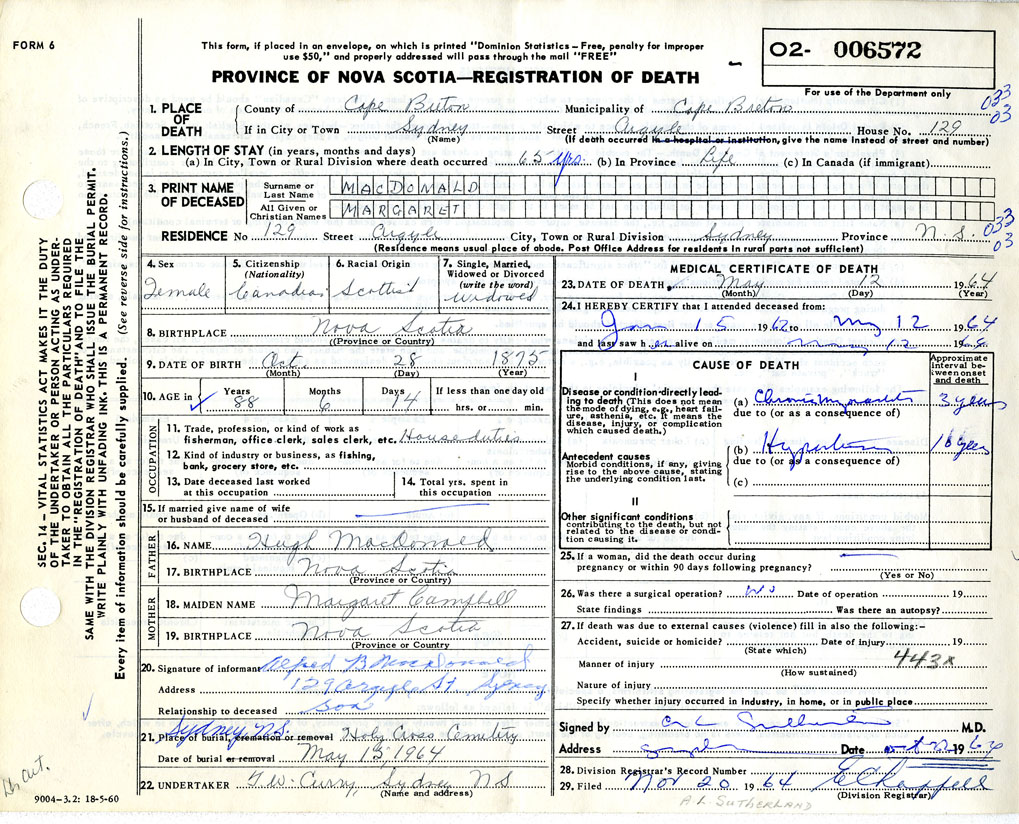 FORM 6
This form, if placed in an envelope, on which is printed "Dominion Statistics – Free, penalty for improper
use $50," and properly addressed will pass through the mail "FREE"
PROVINCE OF NOVA SCOTIA—REGISTRATION OF DEATH
O2- 006572
For use of the Department only
033
03
1. PLACE OF DEATH
County of Cape Breton Municipality of Cape Breton
If in City or Town Sydney Street Argyle House No. 129
(Name) (If death occurred in a hospital or institution, give the name instead of street and number)
2. LENGTH OF STAY (in years, months and days)
(a) In City, Town or Rural Division where death occurred 65 yrs. (b) In Province Life (c) In Canada (if immigrant)
3. PRINT NAME OF DECEASED
Surname or Last Name MACDONALD
All Given or Christian Names MARGARET
RESIDENCE No 129 Street Argyle City, Town or Rural Division Sydney Province N.S.
033
03
(Residence means usual place of abode. Post Office Address for residents in rural parts not sufficient)
4. Sex Female
5. Citizenship (Nationality) Canadian
6. Racial Origin Scottish
7. Single, Married, Widowed or Divorced (write the word) Widowed
8. BIRTHPLACE Nova Scotia
(Province or Country)
9. DATE OF BIRTH Oct. 28 1875
(Month) (Day) (Year)
10. AGE in Years 88 Months 6 Days 14 If less than one day old hrs. or min.
OCCUPATION
11. Trade, profession, or kind of work as
fisherman, office clerk, sales clerk, etc. House duties
12. Kind of industry or business, as fishing,
bank, grocery store, etc.
13. Date deceased last worked
at this occupation
14. Total yrs. spent in
this occupation
15. If married give name of wife
or husband of deceased
FATHER
16. NAME Hugh MacDonald
17. BIRTHPLACE Nova Scotia
(Province or Country)
MOTHER
18. MAIDEN NAME Margaret Campbell
19. BIRTHPLACE Nova Scotia
(Province or Country
20. Signature of informant Alfred B MacDonald
Address 129 Argyle St Sydney
Relationship to deceased Son
Sydney N.S.
21. Place of burial, cremation or removal Holy Cross Cemetery
Date of burial or removal May 15, 1964
22. UNDERTAKER T.W. Curry, Sydney NS
(Name and address)
9004-3.2: 18-5-60
SEC. 14 – VITAL STATISTICS ACT MAKES IT THE DUTY
OF THE UNDERTAKER OR PERSON ACTING AS UNDER-
TAKER TO OBTAIN ALL THE PARTICULARS REQUIRED
IN THE "REGISTRATION OF DEATH" AND TO FILE THE
SAME WITH THE DIVISION REGISTRAR WHO SHALL ISSUE THE BURIAL PERMIT.
WRITE PLAINLY WITH UNFADING INK. THIS IS A PERMANENT RECORD.
Every item of information should be carefully supplied. (See reverse side for instructions.)
MEDICAL CERTIFICATE OF DEATH
23. DATE OF DEATH May 12 1964
(Month) (Day) (Year)
24. I HEREBY CERTIFY that I attended deceased from:
Jan 15 1962 to May 12 1964
and last saw her alive on May 12 1964
CAUSE OF DEATH
Approximate interval between onset and death
I
Disease or condition directly lead-
ing to death (This does not mean
the mode of dying, e.g., heart fail-
ure, asthenia, etc. It means the
disease, injury, or complication
which caused death.)
(a) Chronic myocarditis 3 years
due to (or as a consequence of)
Antecedent causes
Morbid conditions, if any, giving
rise to the above cause, stating
the underlying condition last.
(b) Hypertension 10 years
due to (or as a consequence of)
(c)
II
Other significant conditions
contributing to the death, but not
related to the disease or condi-
tion causing it.
25. If a woman, did the death occur during
pregnancy or within 90 days following pregnancy?
(Yes or No)
26. Was there a surgical operation? No Date of operation 19
State findings Was there an autopsy?
27. If death was due to external causes (violence) fill in also the following:–
Accident, suicide or homicide? Date of injury 19
(State which)
443X
Manner of injury
(How sustained)
Nature of injury
Specify whether injury occurred in industry, in home, or in public place
Signed by Sutherland M.D.
Address Sydney Date Oct 1964
28. Division Registrar's Record Number
29. Filed Nov 20 1964 E Chappell
(Division Registrar)
A. L. SUTHERLAND